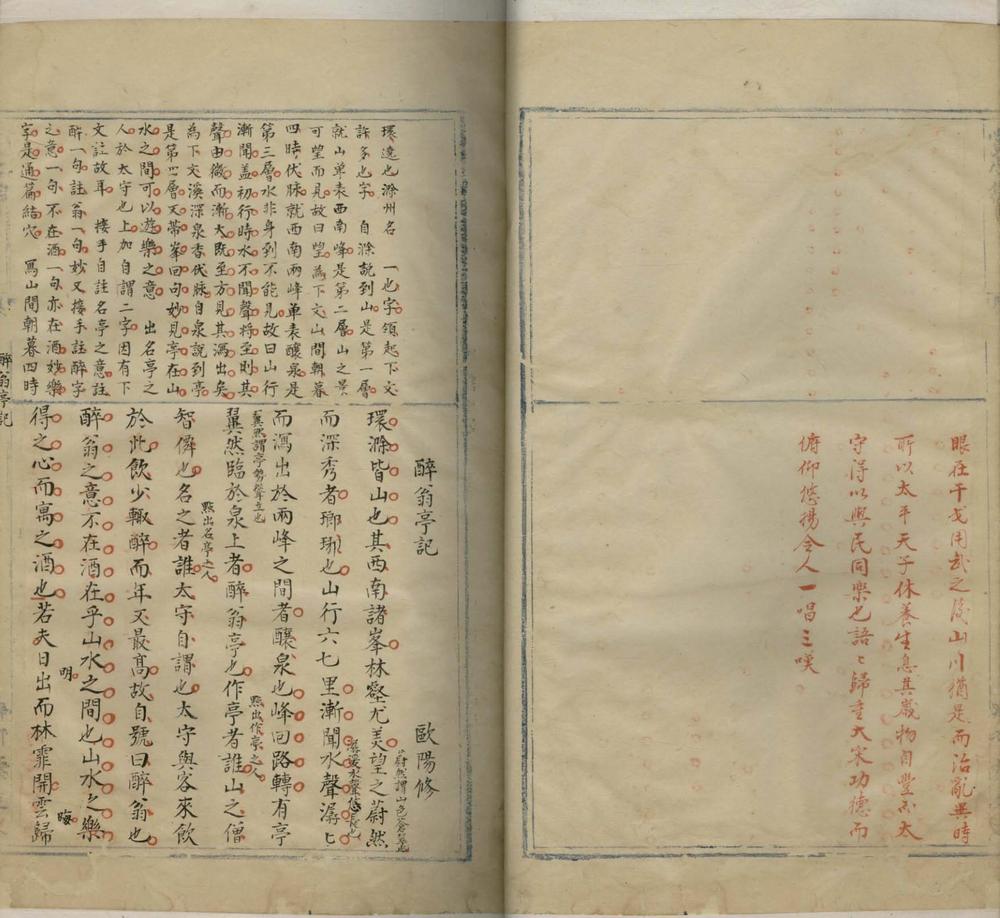 眼在干戈用武之後山川猶是而治亂異時
所以太平天子休養生息其歲物自豐而太
守得以與民同樂也語〻歸重大宋功德而
俯仰悠揚令人一唱三嘆
環遶也滁州名　一也字領起下文
許多也字　自滁說到山是第一層
就山單表西南峰是第二層山之景
可望而見故曰望為下文山間朝暮
四時伏脉就西南兩峰單表釀泉是
第三層水非身到不能見故曰山行
漸聞盖初行時水不聞聲將至則其
聲由微而漸大既至方見其瀉出矣
為下文溪深泉香伏脉自泉說到亭
是第四層又帶峯回句妙見亭在山
水之間可以遊樂之意　出名亭之
人於太守也上加自謂二字因有下
文註故耳　接手自註名亭之意註
醉一句註翁一句妙又接手註醉字
之意一句不在酒一句亦在酒妙樂
字是通篇結穴　寫山間朝暮四時
醉翁亭記　歐陽修
環滁皆山也其西南諸峯林壑尤美望之蔚然
蔚然謂山色蒼蒼也
而深秀者瑯琊也山行六七里漸聞水聲潺〻
而瀉出於兩峰之間者釀泉也峰回路轉有亭
翼然謂亭勢聳立也
翼然臨於泉上者醉翁亭也作亭者誰山之僧
點出作亭之人
智僊也名之者誰太守自謂也太守與客來飲
點出名亭之人
於此飲少輒醉而年又最高故自號曰醉翁也
醉翁之意不在酒在乎山水之間也山水之樂
得之心而寓之酒也若夫日出而林霏開雲歸
明
晦
醉翁亭記